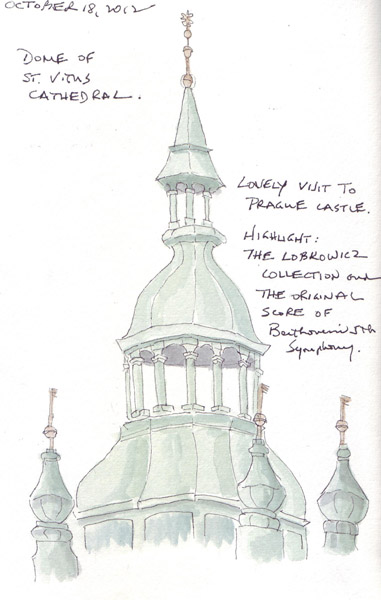 OCTOBER 18, 2012
DOME OF
ST. VITUS
CATHEDRAL.
LOVELY VISIT TO
PRAGUE CASTLE.
HIGHLIGHT:
THE LOBROWICZ
COLLECTION and
THE ORIGINAL
SCORE OF
Beethoven's 5th
Symphony.